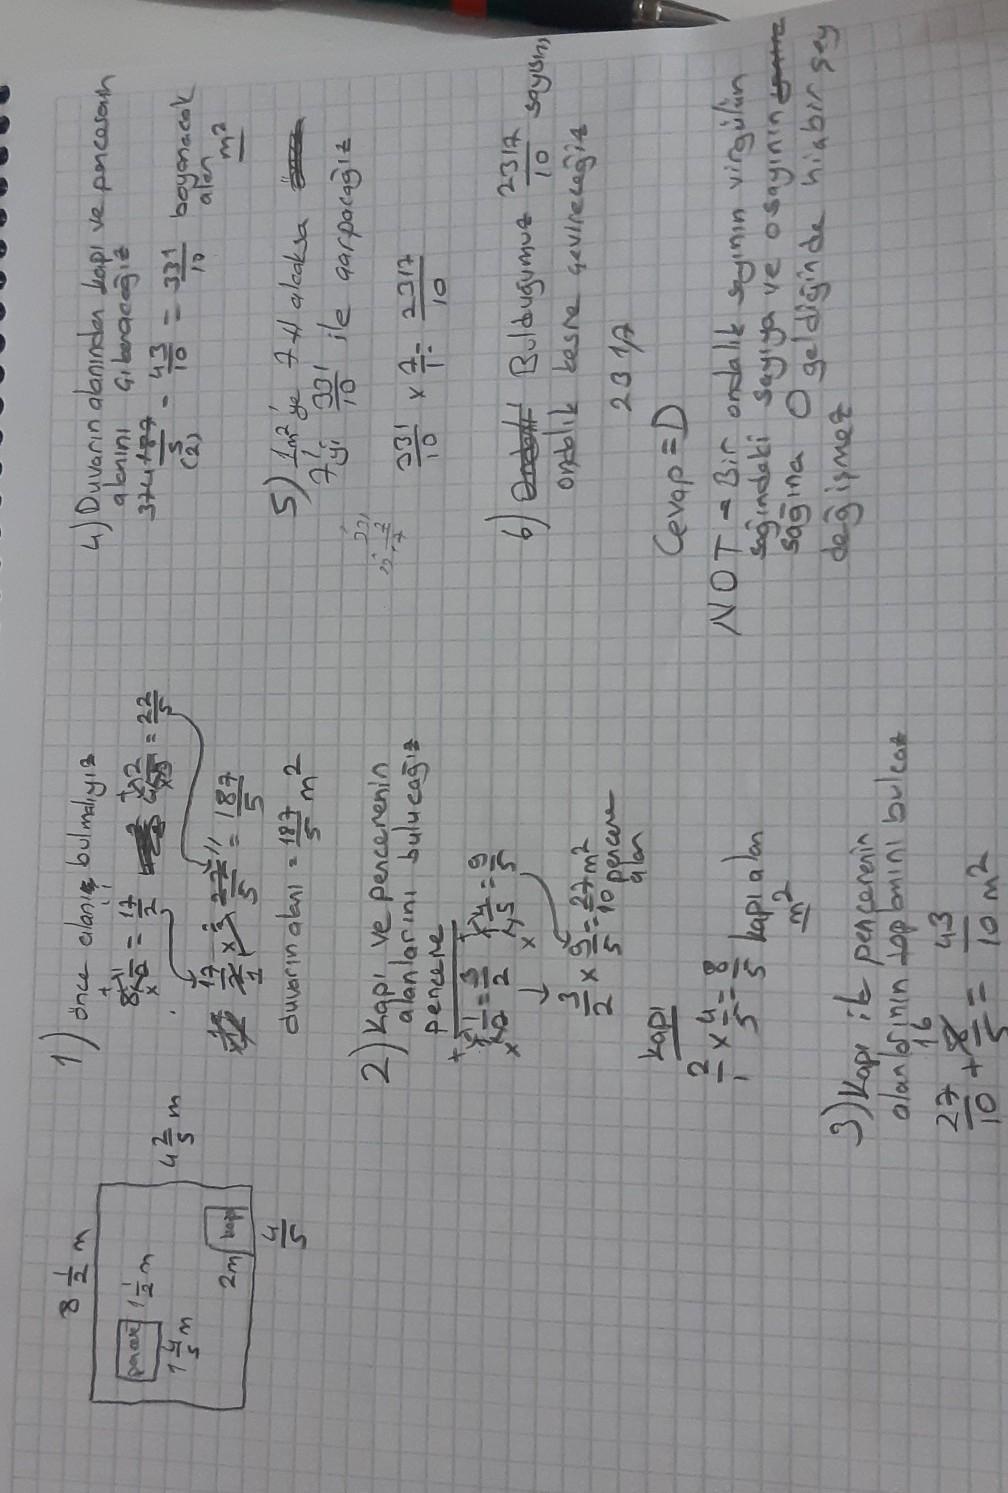 8 1/2 m
pencere
1 1/2 m
1 4/5 m
4 2/5 m
2m
kapı
4/5
1) Önce alanı bulmalıyız
8 1/2 = 17/2
4 2/5 = 22/5
17/2 x 22/5 = 187/5
duvarın alanı = 187/5 m²
2) Kapı ve pencerenin
alanlarını bulucağız
pencere
1 1/2 = 3/2 1 4/5 = 9/5
3/2 x 9/5 = 27/10 m² pencere
alan
kapı
2/1 x 4/5 = 8/5 kapı alan
m²
3) Kapı ile pencerenin
alanlarının toplamını bulcaz
27/10 + 8/5 = 43/10 m²
16
4) Duvarın alanından kapı ve pencerenin
alanını çıkaracağız
374 187/5 - 43/10 = 331/10 boyanacak
alan
(2)
m²
5) 1m² ye 7 tl alcaksa
7 yi 331/10 ile çarpacağız
331/10 x 7/1 = 2317/10
6) Bulduğumuz 2317/10 sayısını
ondalık kesre çevireceğiz
231,7
Cevap = D
NOT → Bir ondalık sayının virgülün
sağındaki sayıya ve o sayının
sağına 0 geldiğinde hiçbir şey
değişmez